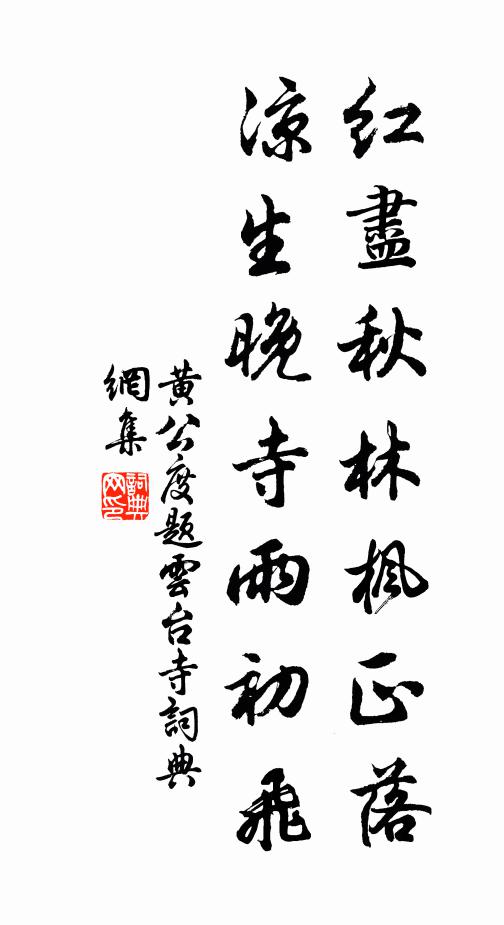 紅盡秋林楓正落
涼生晚寺雨初飛
黃公度題雲台寺詞典
網集
詞典網印